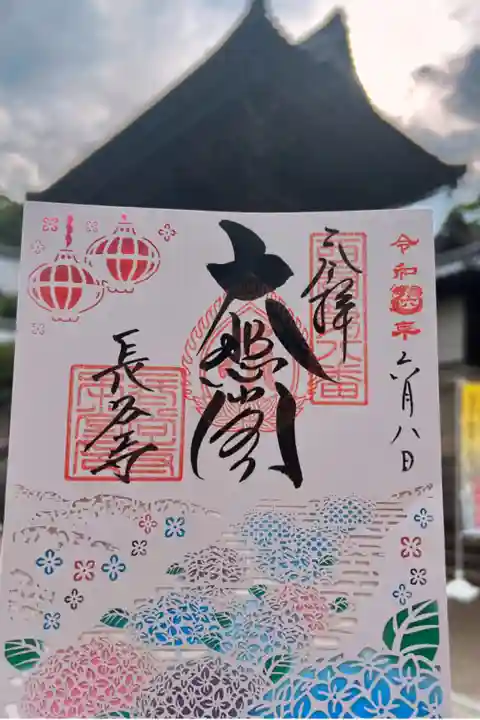 奉拝
令和四年
六月八日
大悲閣
長谷寺